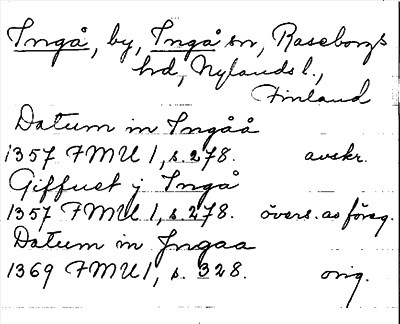 Ingå, by, Ingå sn, Raseborgs
hd, Nylands l.,
Finland
Datum in Ingåå
1357 FMU 1, s. 278. avskr.
Giffuet j Ingå
1357 FMU 1, s. 278. övers. as försg.
Datum in Jngaa
1369 FMU 1, s. 328. orig.